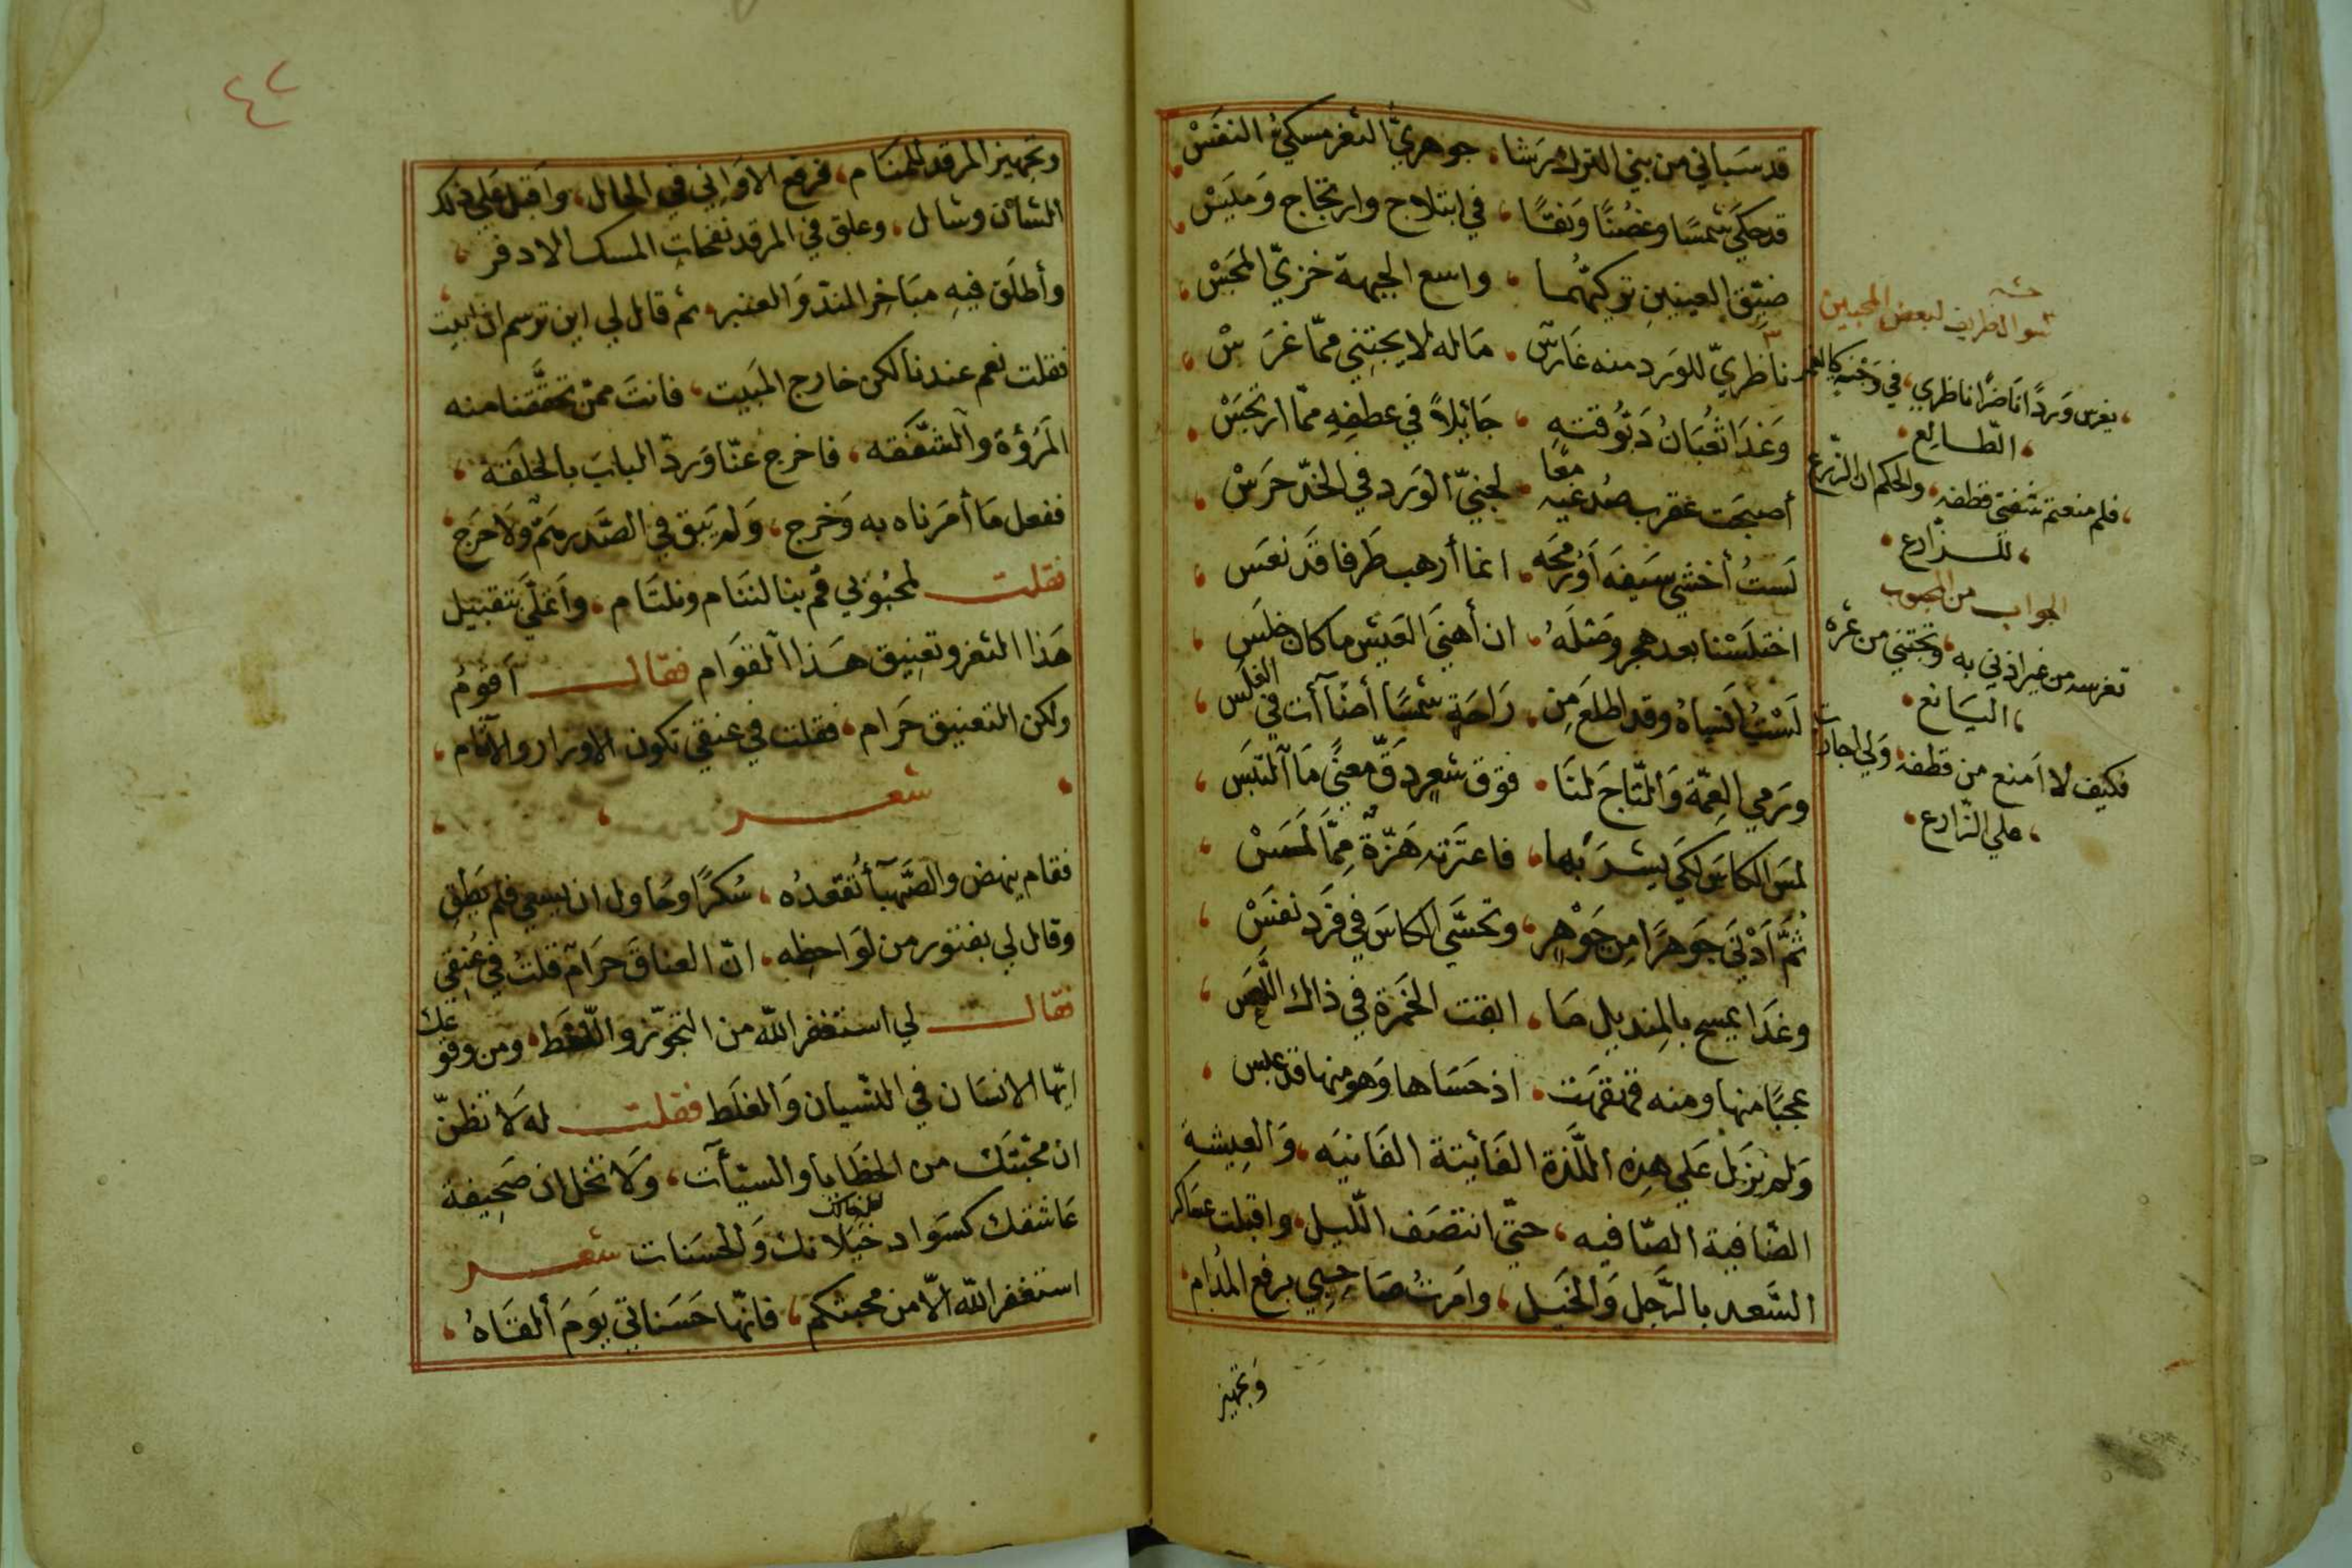 قد سَبَاني من بني الترك رَشا، جوهريّ الثغر مسكيّ النفَسْ
قد حكَى شمسًا وغصْنًا وَنَقًا، في ابتلاج وارتجاج وَمَيَسْ
ضيّق العينين تركيّهما، واسع الجبهة خزيّ المجَسْ
ناظريّ للوَرد منه غَارسٌ، مَا له لا يجتني ممّا غرَسْ
وَغدَا ثعُبَانُ دَبّوقتهِ، جَائلاً في عطفِهِ ممّا ارتجَسْ
أصبحَت عَقرب صُدغيه معًا، لجنيّ الوَرد في الخدّ حرَسْ
لَستُ أخشى سَيفه اَوْ رُمحَه، انما أرهب طَرفا قَد نعَسَ
اختلَسْنا بعد هجر وصْلَهُ، ان أهنَى العَيش ما كان خلَس
لَسْتُ اَنسَاهُ وقد اطلعَ مِن، رَاحَةٍ شمسًا أضَآءَت في الغلَس
وَرَمي العِمّة وَالتّاجَ لنَا، فوَق شَعرٍ دَقّ معنًى مَا التبَس
لمسَ الكاسَ لكَي يشرَبها، فاعتَرته هَزّةٌ مِمَّا لمَسْ
ثُمَّ اَدْنَى جَوهرًا مِن جَوْهرٍ، وتحسَّى الكاسَ في فَرد نفَسْ
وغدَا يمسح بالمِنديل مَا، ابقت الخمَرة في ذاك اللّعَس
عجبًا منها ومنه قهقهَت، اذ حَسَاها وَهو منها قد عبس
وَلم نزَل عَلى هذه اللّذة الفَائتة الفَانيَه، وَالعِيشة
الضّافية الصّافيه، حتّى انتصَف اللّيل، واقبلت عسَاكر
السَّعد بالرَّجل وَالخَيل، وامَرتُ صَاحِبي برفع المُدام
وَتجهيز
حشه
سوال ظريف لبعض المحبين
يغرس وَردًا ناضرًا ناظري، في وَجنة كالقمر
، الطّالع،
، فلم منعتم شَفتي قطفه، والحكم ان الزّرع
، للزّارع،
الجواب من المحبوب
تغرسه من غير اذني به، وتجتني من ثمره
، اليَانع،
فكيف لا امنع من قطفه، وَلي اجارات
، على الزّارع،
٤٢
وتجهيز المرقد للمنَام، فرفع الاوَاني في الحال، وَاقبل عَلى ذلك
الشأن وشال، وعلق في المرقد نفحات المسك الادفر،
وأطلَق فيهِ مبَاخِر الندّ وَالعنبر، ثم قال لي اين ترسم ان ابيت
فقلت نعم عندنا لكن خارج المَبيت، فانتَ ممّن تحقَّقنا منه
المَرُؤة وَالشفَقه، فاخرج عنّا وَردّ البابَ بالحلقَة،
ففعل مَا أمَرناه به وَخرج، وَلم يَبق في الصَّدر همّ وَلاحَرج
فقلت لمحبُوبي قُم بنا لننَام ونلتَام، وَاتملّى بتقبيل
هَذا الثغر وتعنِيق هَذا القوَام فقال اَقوُمُ
ولكن التعنيق حَرام، فقلت في عنقي تكون الاوزار والآثام،
شعر
فقام ينهض والصَّهبآ تُقعدُه، سُكرًا وحَاول ان يسعى فلم يَطِقِ
وقال لي بفتور من لوَاحظِه، انّ العناق حرَام قلتُ في عُنقِي
فقال لي استغفر الله من التجوّز واللّغَط، ومن وقوعك
ايّها الانسَان في النّسيان وَالغلَط فقلت له لَا تظنّ
ان محبّتَك من الخطَايا والسّيّآت، وَلا تخَل ان صَحِيفة
عَاشقك كسَواد خيلانك وَالحسَنات شعر
استغفر الله الّا من محبتكم، فانّها حَسَناتي يَومَ ألقَاهُ،